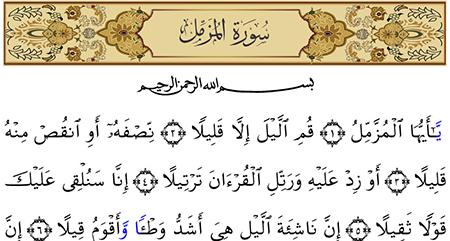 سُورَةُ الْمُزَّمِّلِ
بِسْمِ اللَّهِ الرَّحْمَٰنِ الرَّحِيمِ
يَٰٓأَيُّهَا ٱلْمُزَّمِّلُ ﴿١﴾ قُمِ ٱلَّيْلَ إِلَّا قَلِيلًا ﴿٢﴾ نِّصْفَهُۥٓ أَوِ ٱنقُصْ مِنْهُ
قَلِيلًا ﴿٣﴾ أَوْ زِدْ عَلَيْهِ وَرَتِّلِ ٱلْقُرْءَانَ تَرْتِيلًا ﴿٤﴾ إِنَّا سَنُلْقِى عَلَيْكَ
قَوْلًا ثَقِيلًا ﴿٥﴾ إِنَّ نَاشِئَةَ ٱلَّيْلِ هِىَ أَشَدُّ وَطْـًٔا وَأَقْوَمُ قِيلًا ﴿٦﴾ إِنَّ